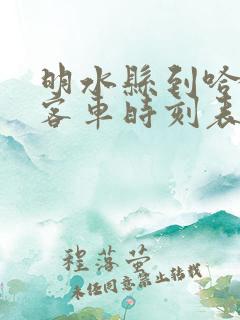 明水縣到哈
客車時刻表
程落螢
未经同意禁止转载